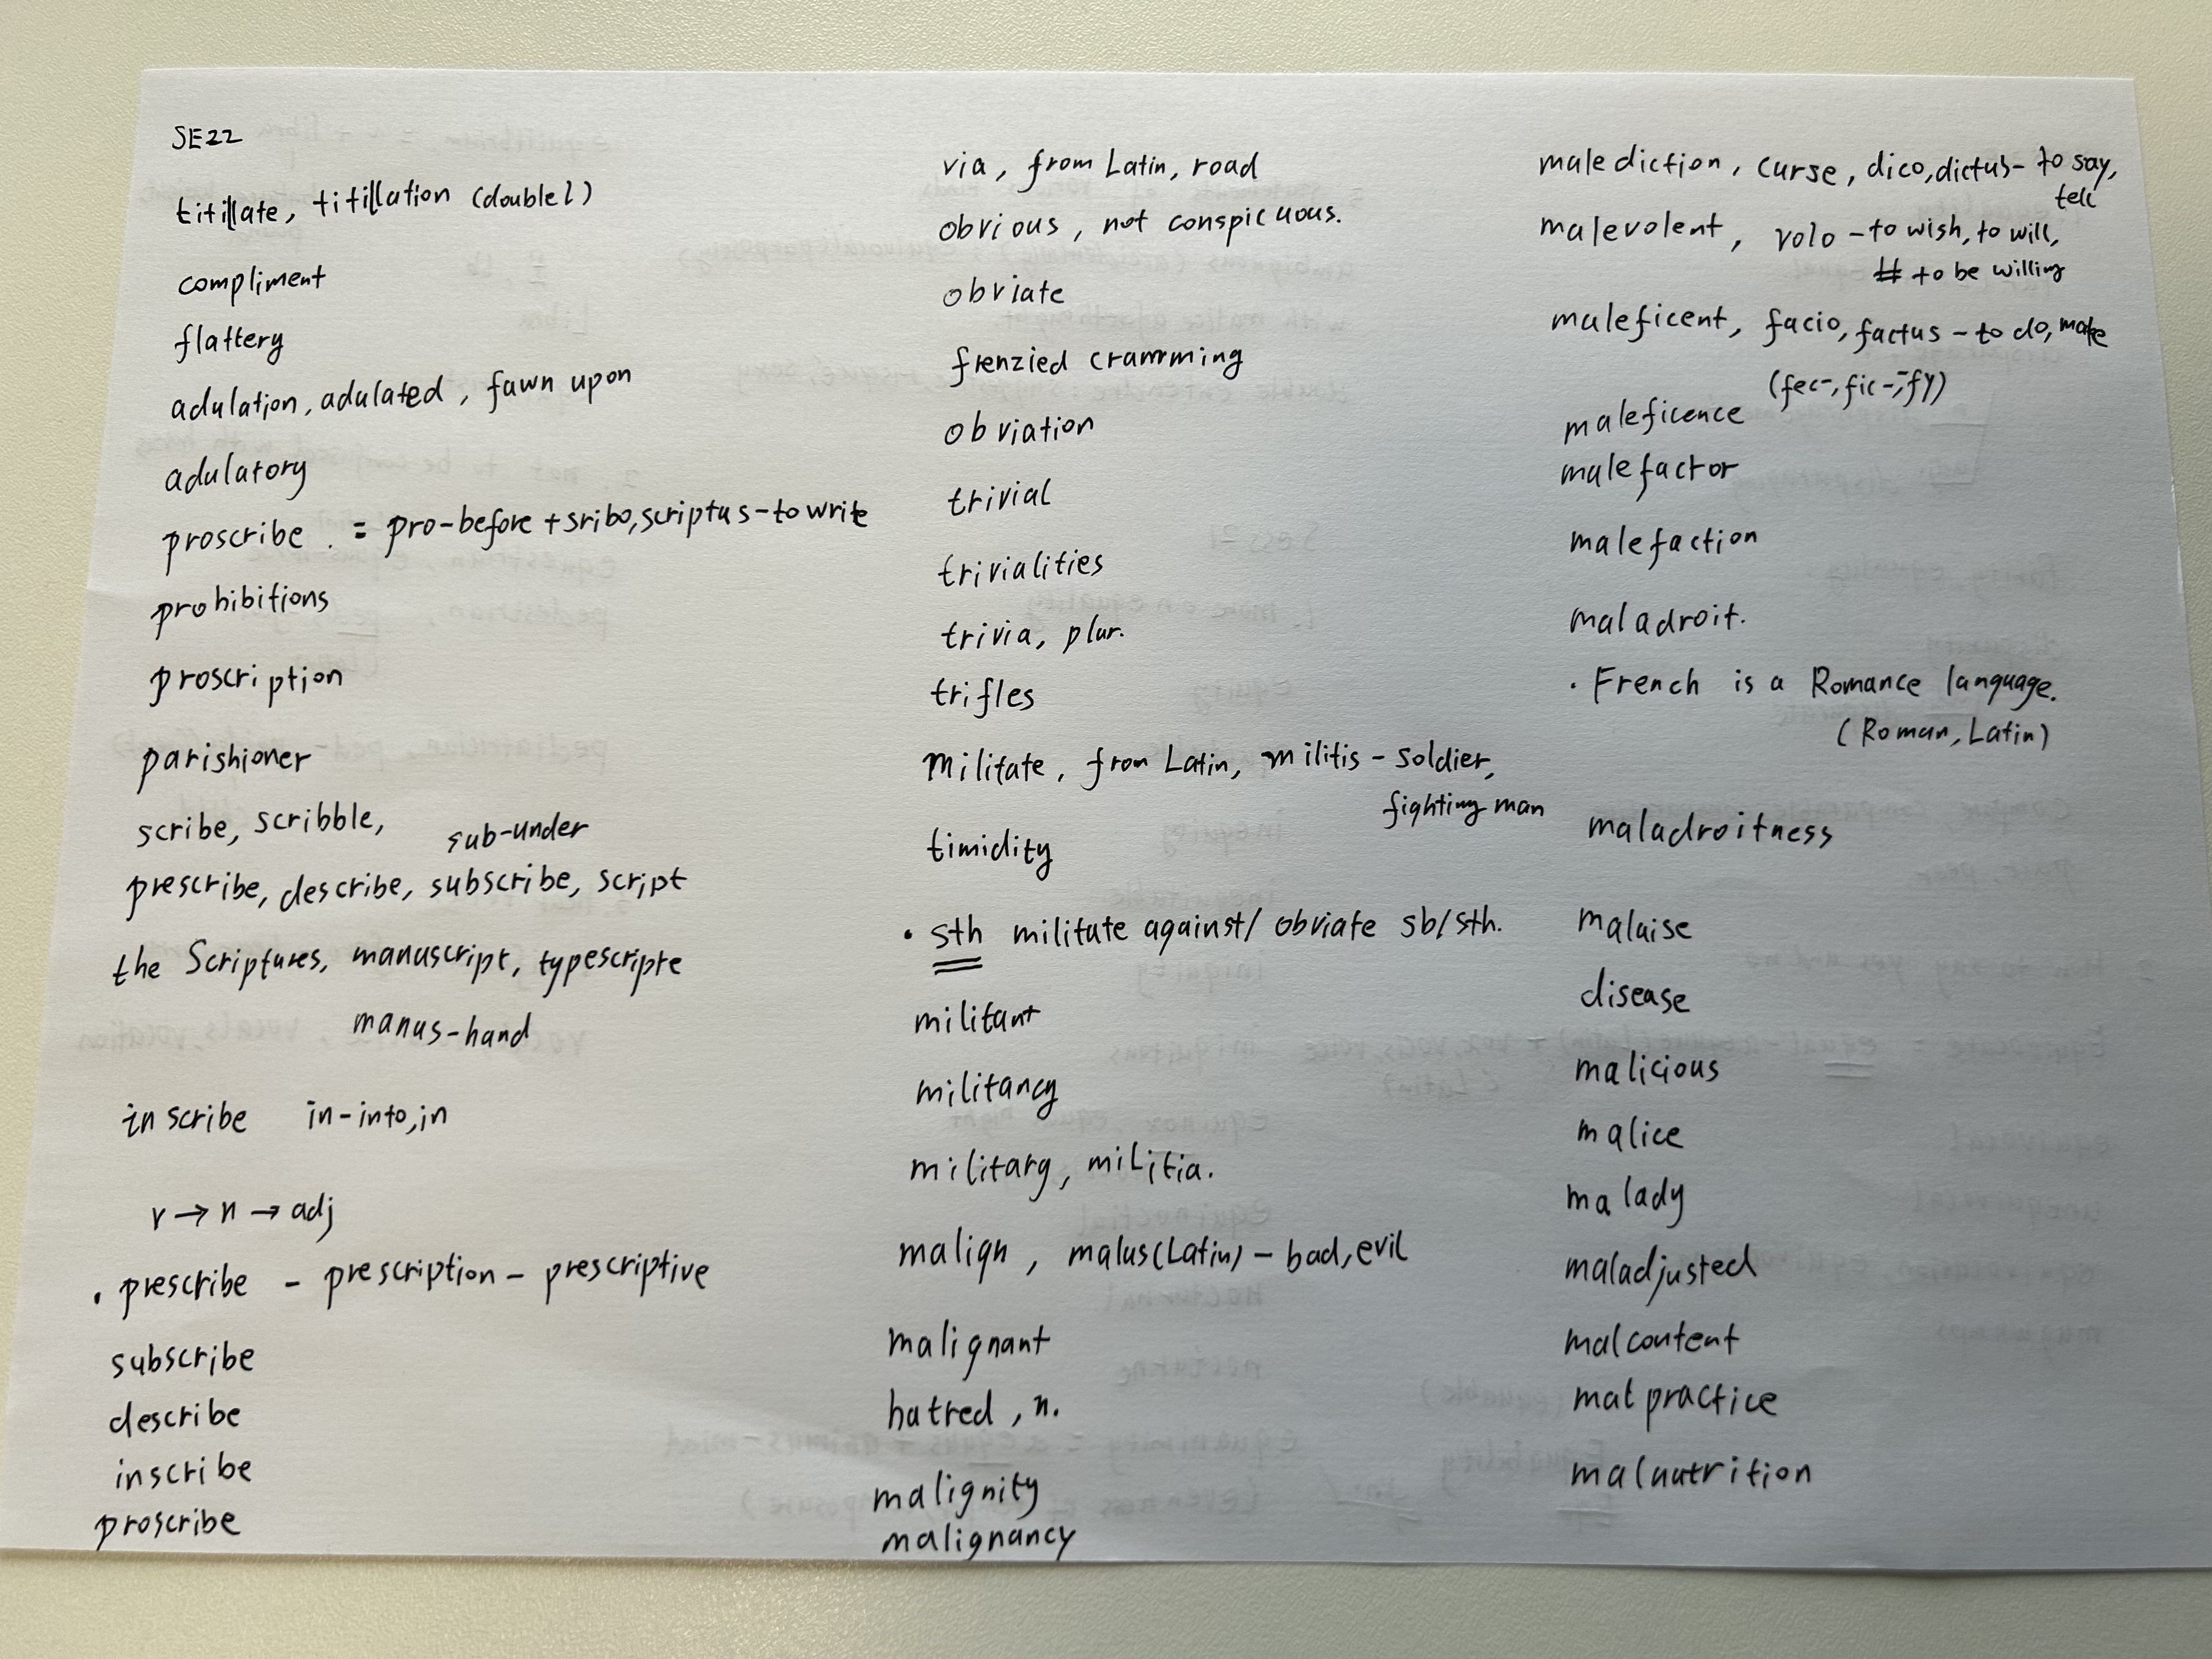 SE22
titillate, titillation (double l)
compliment
flattery
adulation, adulated, fawn upon
adulatory
proscribe. = pro-before + sribo, scriptus-to write
prohibitions
proscription
parishioner
scribe, scribble,
sub-under
prescribe, describe, subscribe, script
the Scriptures, manuscript, typescripte
manus-hand
inscribe in-into, in
v → n → adj
. prescribe - prescription - prescriptive
subscribe
describe
inscribe
proscribe
via, from Latin, road
obvious, not conspicuous.
obviate
frenzied cramming
obviation
trivial
trivialities
trivia, plur.
trifles
militate, from Latin, militis - soldier,
fighting man
timidity
• sth militate against/ obviate sb/sth.
militant
militancy
military, militia.
malign, malus (Latin) - bad, evil
malignant
hatred, n.
malignity
malignancy
malediction, curse, dico, dictus- to say,
tell
malevolent, volo - to wish, to will,
to be willing
maleficent, facio, factus - to do, make
(fec-, fic-, -fy)
maleficence
malefactor
malefaction
maladroit.
· French is a Romance language.
(Roman, Latin)
maladroitness
malaise
disease
malicious
malice
malady
maladjusted
malcontent
malpractice
malnutrition